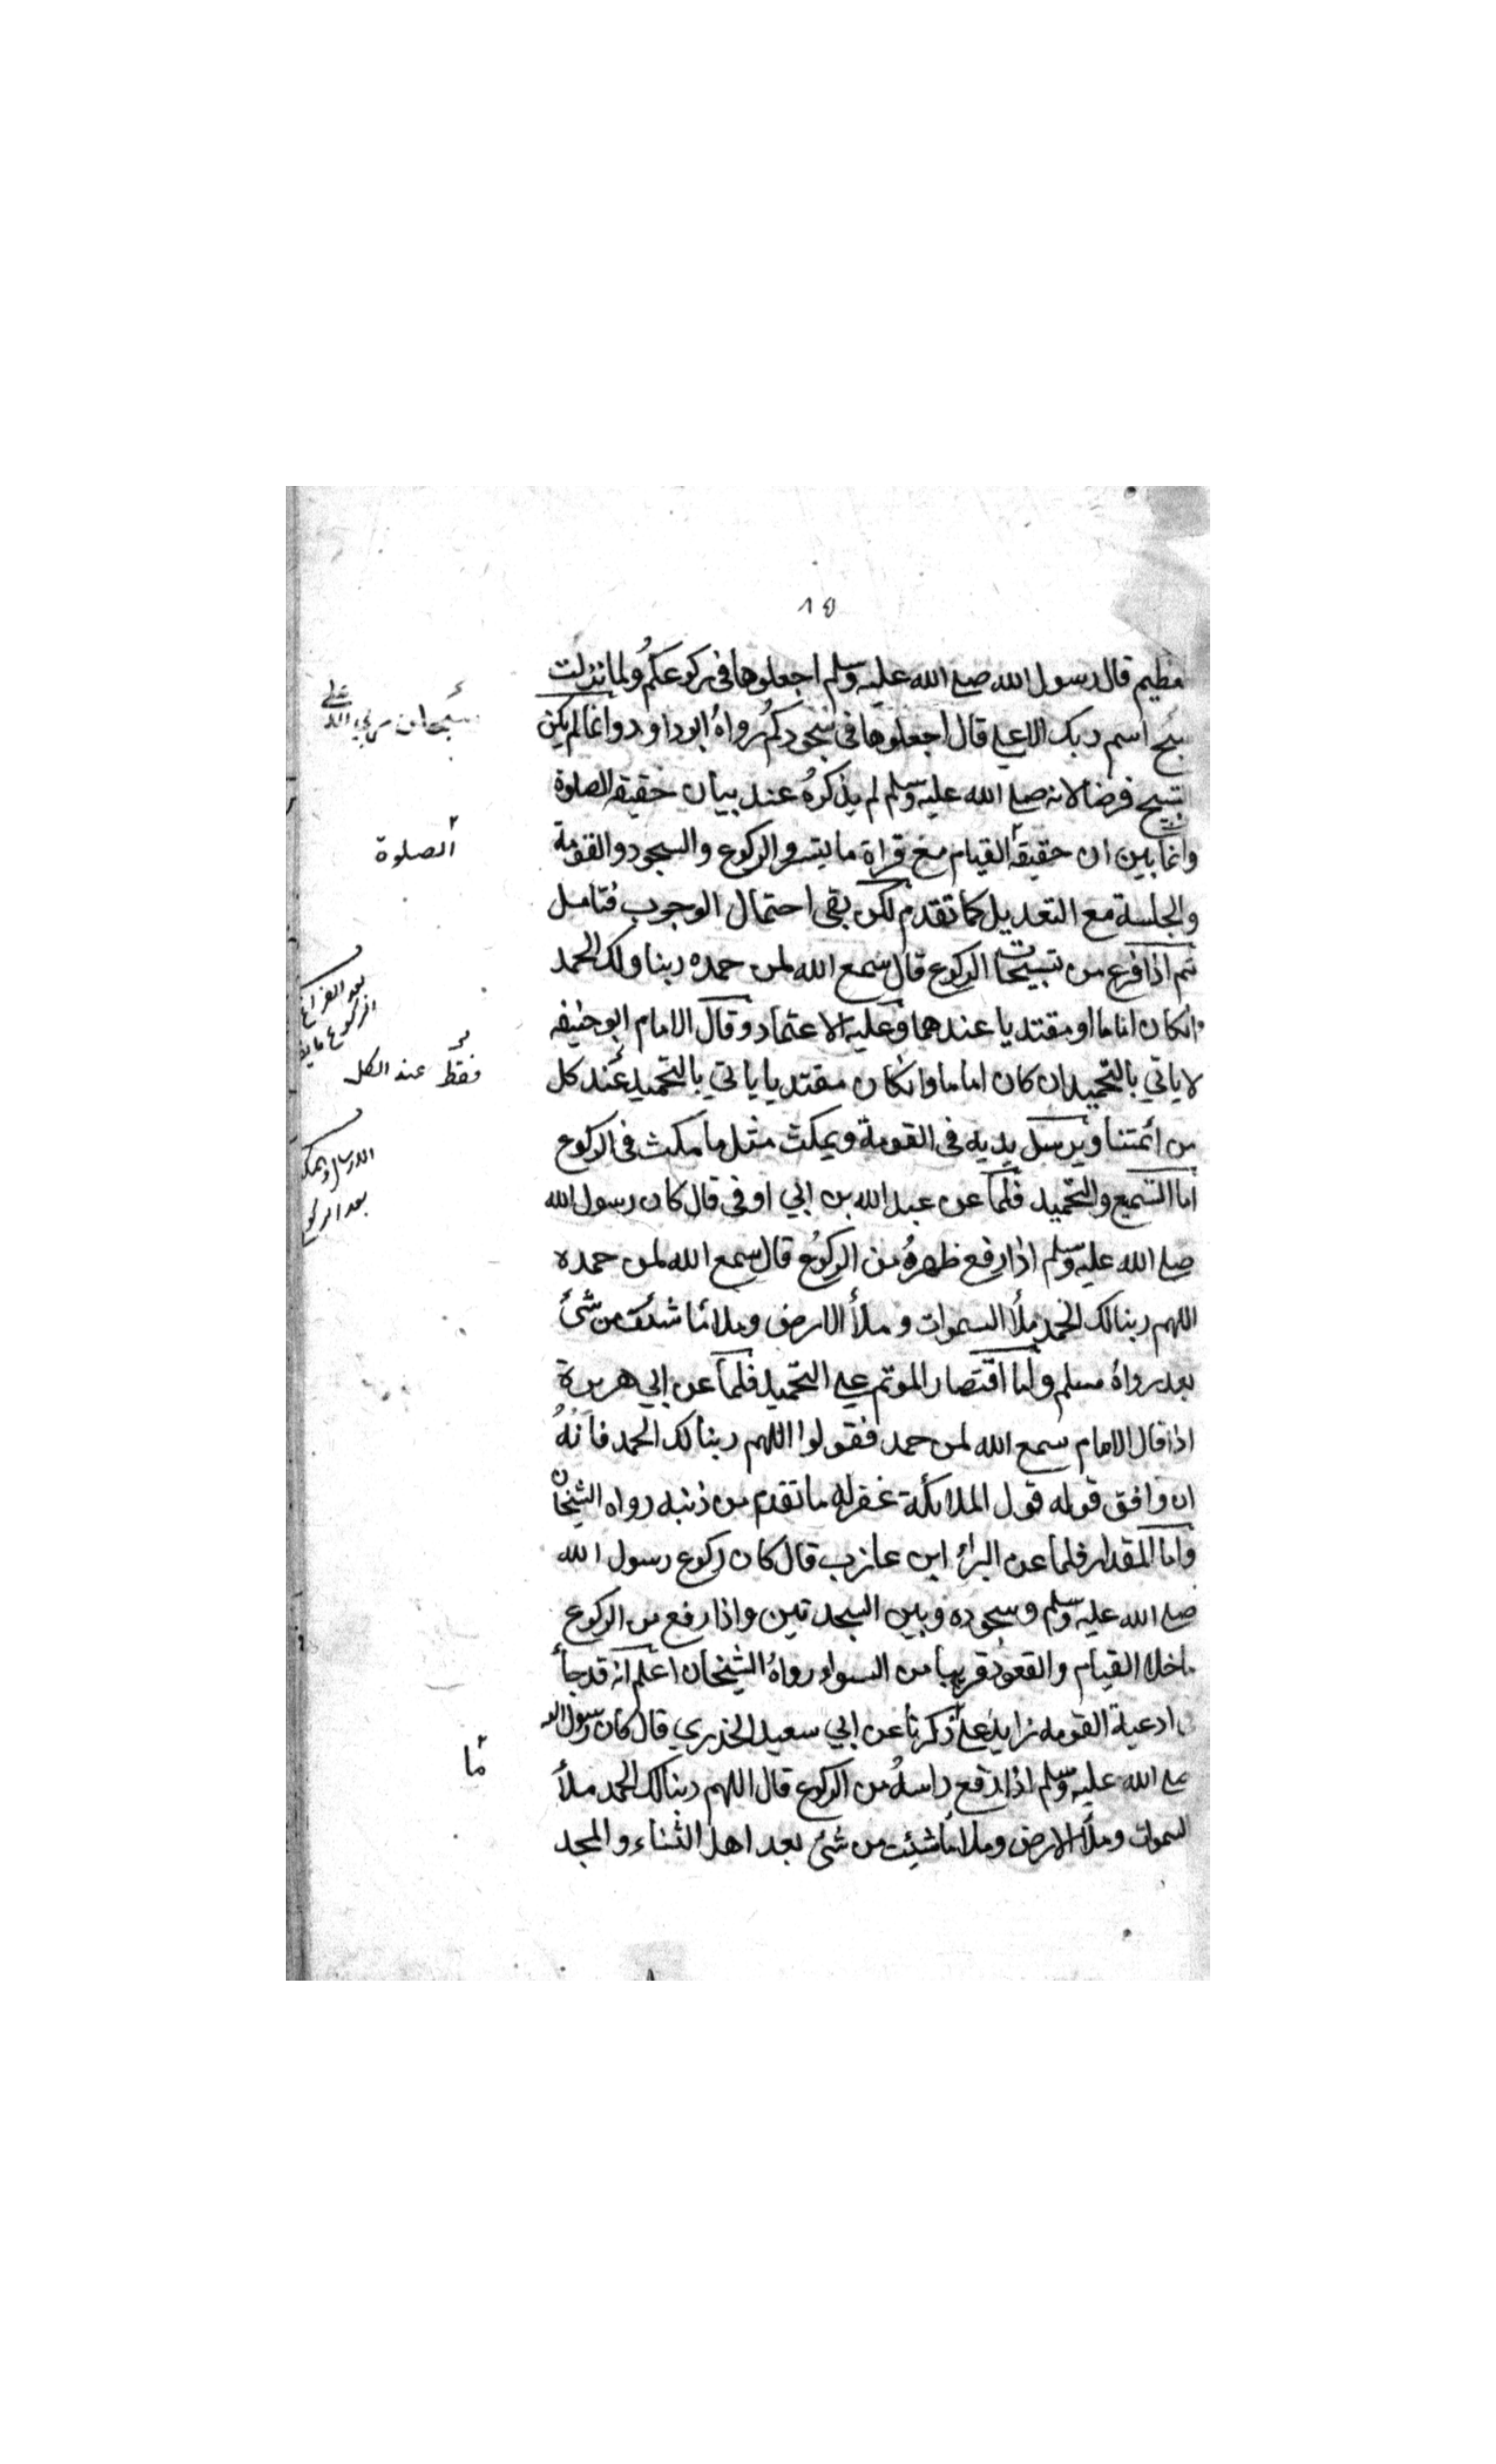 ١٥
عظيم قال رسول الله صلى الله عليه وسلم اجعلوها في ركوعكم ولما نزلت
سبح اسم ربك الاعلى قال اجعلوها في سجودكم رواه ابو داود وانما لم يكن
التسبيح فرضا لانه صلى الله عليه وسلم لم يذكره عند بيان حقيقة الصلوة
وانما بين ان حقيقة القيام مع قراة ما يتيسر والركوع والسجود والقومة
والجلسة مع التعديل كما تقدم لكن بقى احتمال الوجوب فتامل
ثم اذا فرغ من تسبيحات الركوع قال سمع الله لمن حمده ربنا ولك الحمد
وانكان اماما او مقتديا عندهما وعليه الاعتماد وقال الامام ابو حنيفه
لا ياتي بالتحميد ان كان اماما وانكان مقتديا ياتي بالتحميد عند كل
من أئمتنا ويرسل يديه في القومة ويمكث مثل ما مكث في الركوع
اما التسميع والتحميد فلما عن عبد الله بن ابي اوفى قال كان رسول الله
صلى الله عليه وسلم اذا رفع ظهره من الركوع قال سمع الله لمن حمده
اللهم ربنا لك الحمد ملأ السموات وملأ الارض وملأ ما شئت من شئ
بعد رواه مسلم واما اقتصار الموتم على التحميد فلما عن ابي هريرة
اذا قال الامام سمع الله لمن حمد فقولوا اللهم ربنا لك الحمد فانه
ان وافق قوله قول الملائكة غفر له ما تقدم من ذنبه رواه الشيخان
واما المقدار فلما عن البرأ ابن عازب قال كان ركوع رسول الله
صلى الله عليه وسلم وسجوده وبين السجدتين واذا رفع من الركوع
ماخلا القيام والقعود قريبا من السواء رواه الشيخان اعلم انه قد جأ
في ادعية القومه زايد على ذكرنا عن ابي سعيد الخدري قال كان رسول الله
صلى الله عليه وسلم اذا رفع راسه من الركوع قال اللهم ربنا لك الحمد ملأ
السموات وملأ الارض وملأ ما شئت من شئ بعد اهل الثناء والمجد
سبحان ربي الاعلى
الصلوة
بعد الفراغ
الركوع
فقط عند الكل
بعد الركو
ما